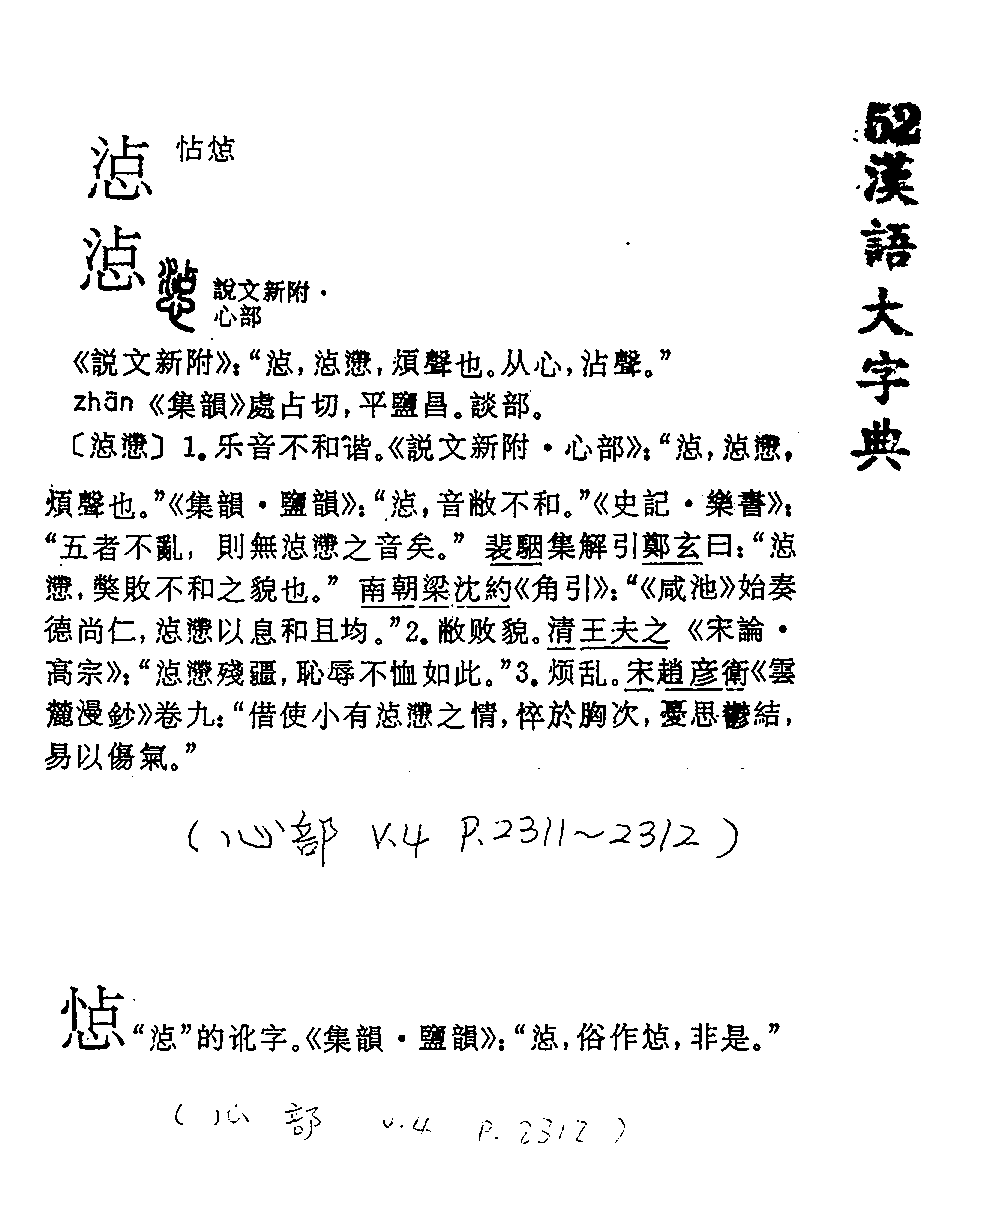 52漢語大字典
惉 怗
惉
説文新附·
心部
《説文新附》：“惉，惉懘，煩聲也。从心，沾聲。”
zhān 《集韻》處占切，平鹽昌。談部。
〔惉懘〕1．乐音不和谐。《説文新附·心部》：“惉，惉懘，
煩聲也。”《集韻·鹽韻》：“惉，音敝不和。”《史記·樂書》：
“五者不亂，則無惉懘之音矣。”裴駰集解引鄭玄曰：“惉
懘，獘敗不和之貌也。”南朝梁沈約《角引》：“《咸池》始奏
德尚仁，惉懘以息和且均。”2．敝败貌。清王夫之《宋論·
高宗》：“惉懘殘疆，恥辱不恤如此。”3．烦乱。宋趙彦衛《雲
麓漫鈔》卷九：“借使小有惉懘之情，悴於胸次，憂思鬱結，
易以傷氣。”
（心部 V.4 P.2311～2312）
“惉”的讹字。《集韻·鹽韻》：“惉，俗作，非是。”
（心部 V.4 P.2312）